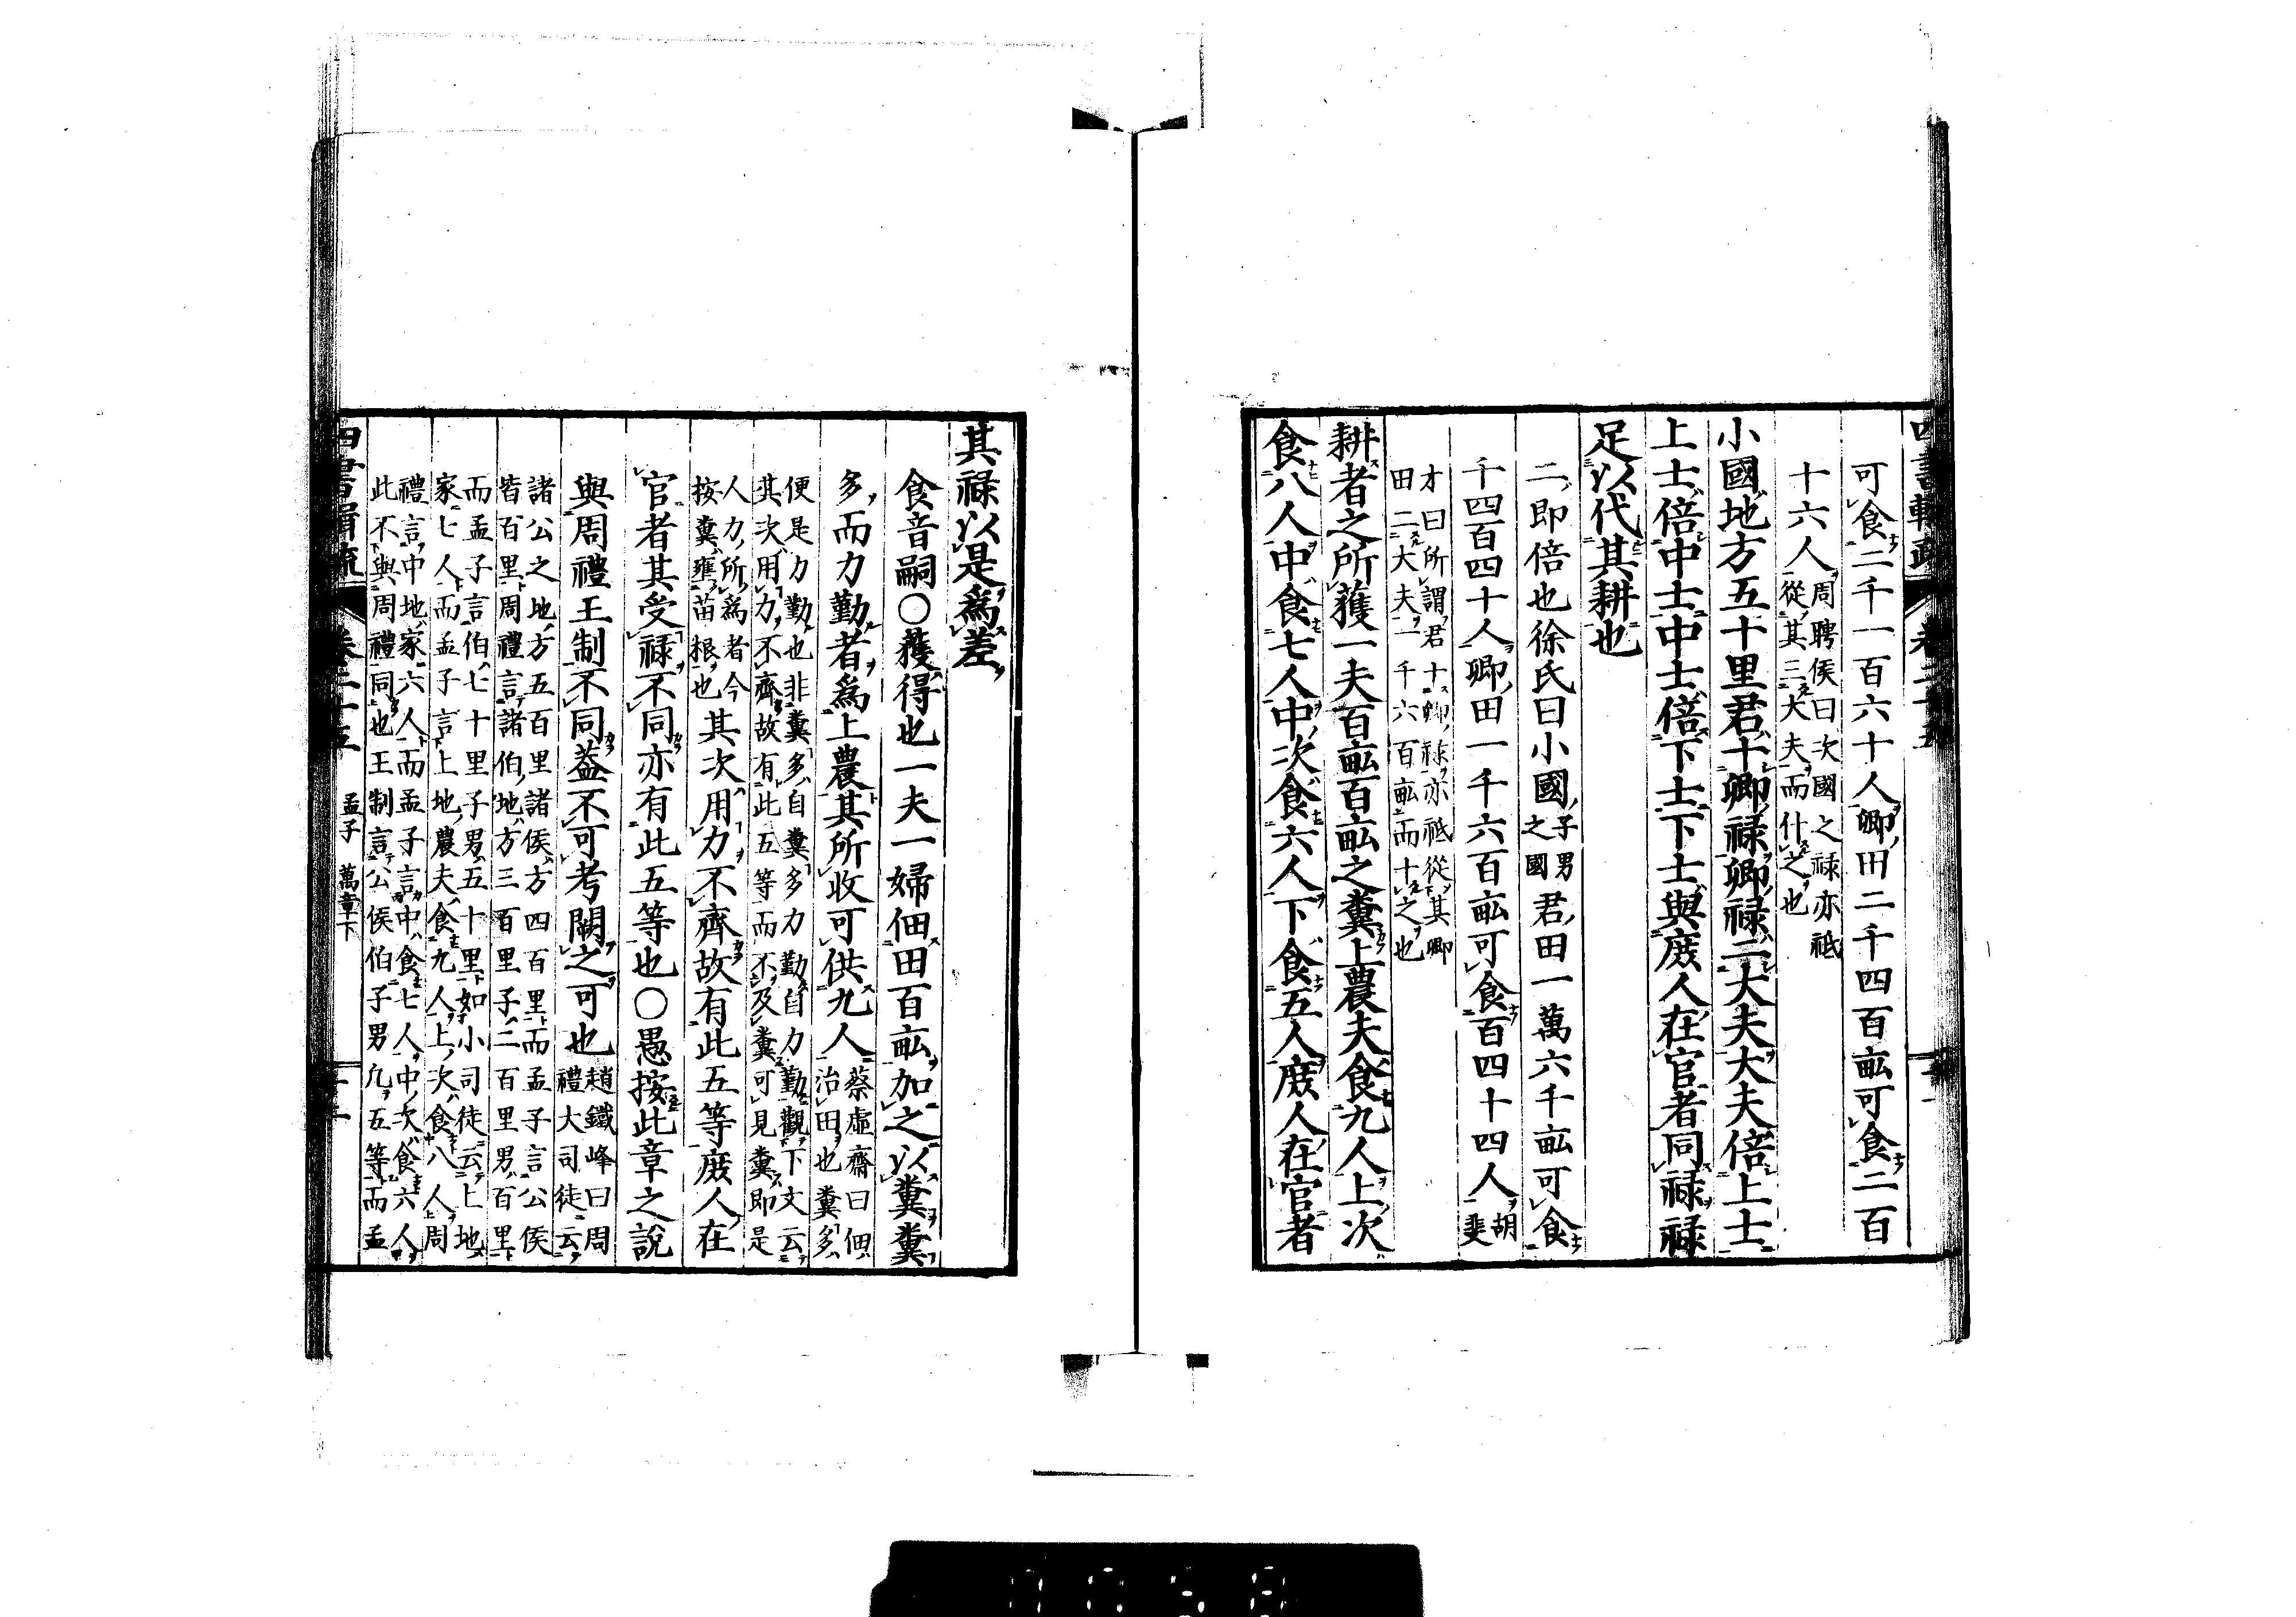 四書輯疏 卷二十五
可食二千一百六十人卿田二千四百畝可食二百
十六人周聘侯曰次國之祿亦祗
從其三大夫而什之也
小國地方五十里君十卿祿卿祿二大夫大夫倍上士
上士倍中士中士倍下士下士與庶人在官者同祿祿
足以代其耕也
二即倍也徐氏曰小國子男之國君田一萬六千畝可食
千四百四十人卿田一千六百畝可食百四十四人胡斐
才曰所謂君十卿祿亦祗從其卿
田二大夫一千六百畝而十之也
耕者之所獲一夫百畝百畝之糞上農夫食九人上次
食八人中食七人中次食六人下食五人庶人在官者
其祿以是爲差
食音嗣○獲得也一夫一婦佃田百畝加之以糞糞
多而力勤者爲上農其所收可供九人蔡虛齋曰佃
治田也糞多
便是力勤也非糞多自糞多力勤自力勤觀下文云
其次用力不齊故有此五等而不及糞可見糞即是
人力所爲者今
按糞壅苗根也其次用力不齊故有此五等庶人在
官者其受祿不同亦有此五等也○愚按此章之說
與周禮王制不同蓋不可考闕之可也趙鐵峰曰周
禮大司徒云
諸公之地方五百里諸侯方四百里而孟子言公侯
皆百里周禮言諸伯地方三百里子二百里男百里
而孟子言伯七十里子男五十里如小司徒云上地
家七人而孟子言上地農夫食九人上次食八人周
禮言中地家六人而孟子言中食七人中次食六人
此不與周禮同也王制言公侯伯子男凡五等而孟
四書輯疏 卷二十五 孟子 萬章下